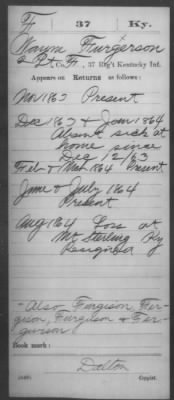 F | 37 | Ky.
Wayne Furgerson
2 Lt. F, Co. F, 37 Reg't Kentucky Inf.
Appears on Returns as follows:
Nov 1863 Present
Dec 1863 & Jan 1864
Absent sick at
home since
Dec 12/63
Feb & Mch 1864 Present
June & July 1864
Present
Aug 1864 Loss at
Mt Sterling Ky
Resigned
- Also Furgison, Fer-
gison, Furgeson & Fer-
gurson
Book mark:
Dalton
Copyist.